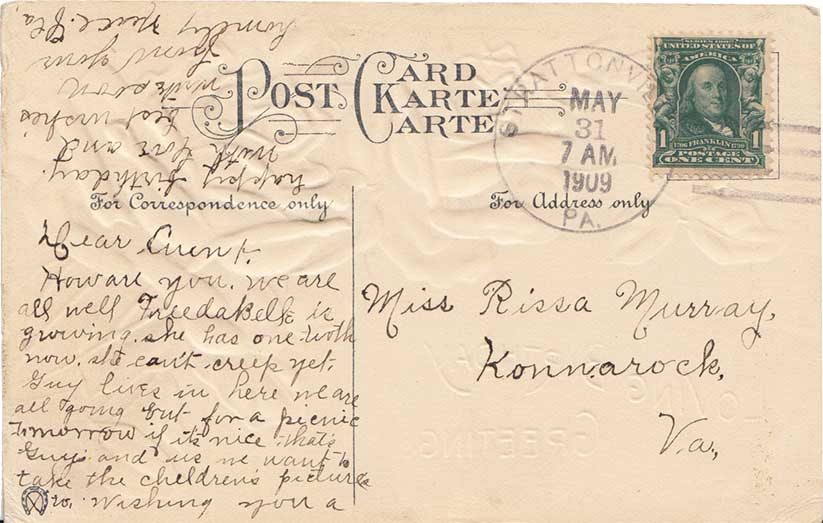 POST CARD
KARTE
CARTE
For Correspondence only
For Address only
STRATTONVI
MAY
31
7 AM
1909
PA.
SERIES 1902
UNITED STATES OF
AMERICA
1 1
1706 FRANKLIN 1790
POSTAGE
ONE CENT
Miss Rissa Murray,
Konnarock,
Va.,
Dear Aunt,
How are you. we are
all well FreedaBelle is
growing. she has one tooth
now. she can't creep yet.
Guy lives in here we are
all going out for a picnic
tomorrow if its nice that's
Guys and us we want to
take the children's pictures
Wishing you a
happy birthday.
with love and
best wishes
write soon
from your
BIRTHDAY
GREETING